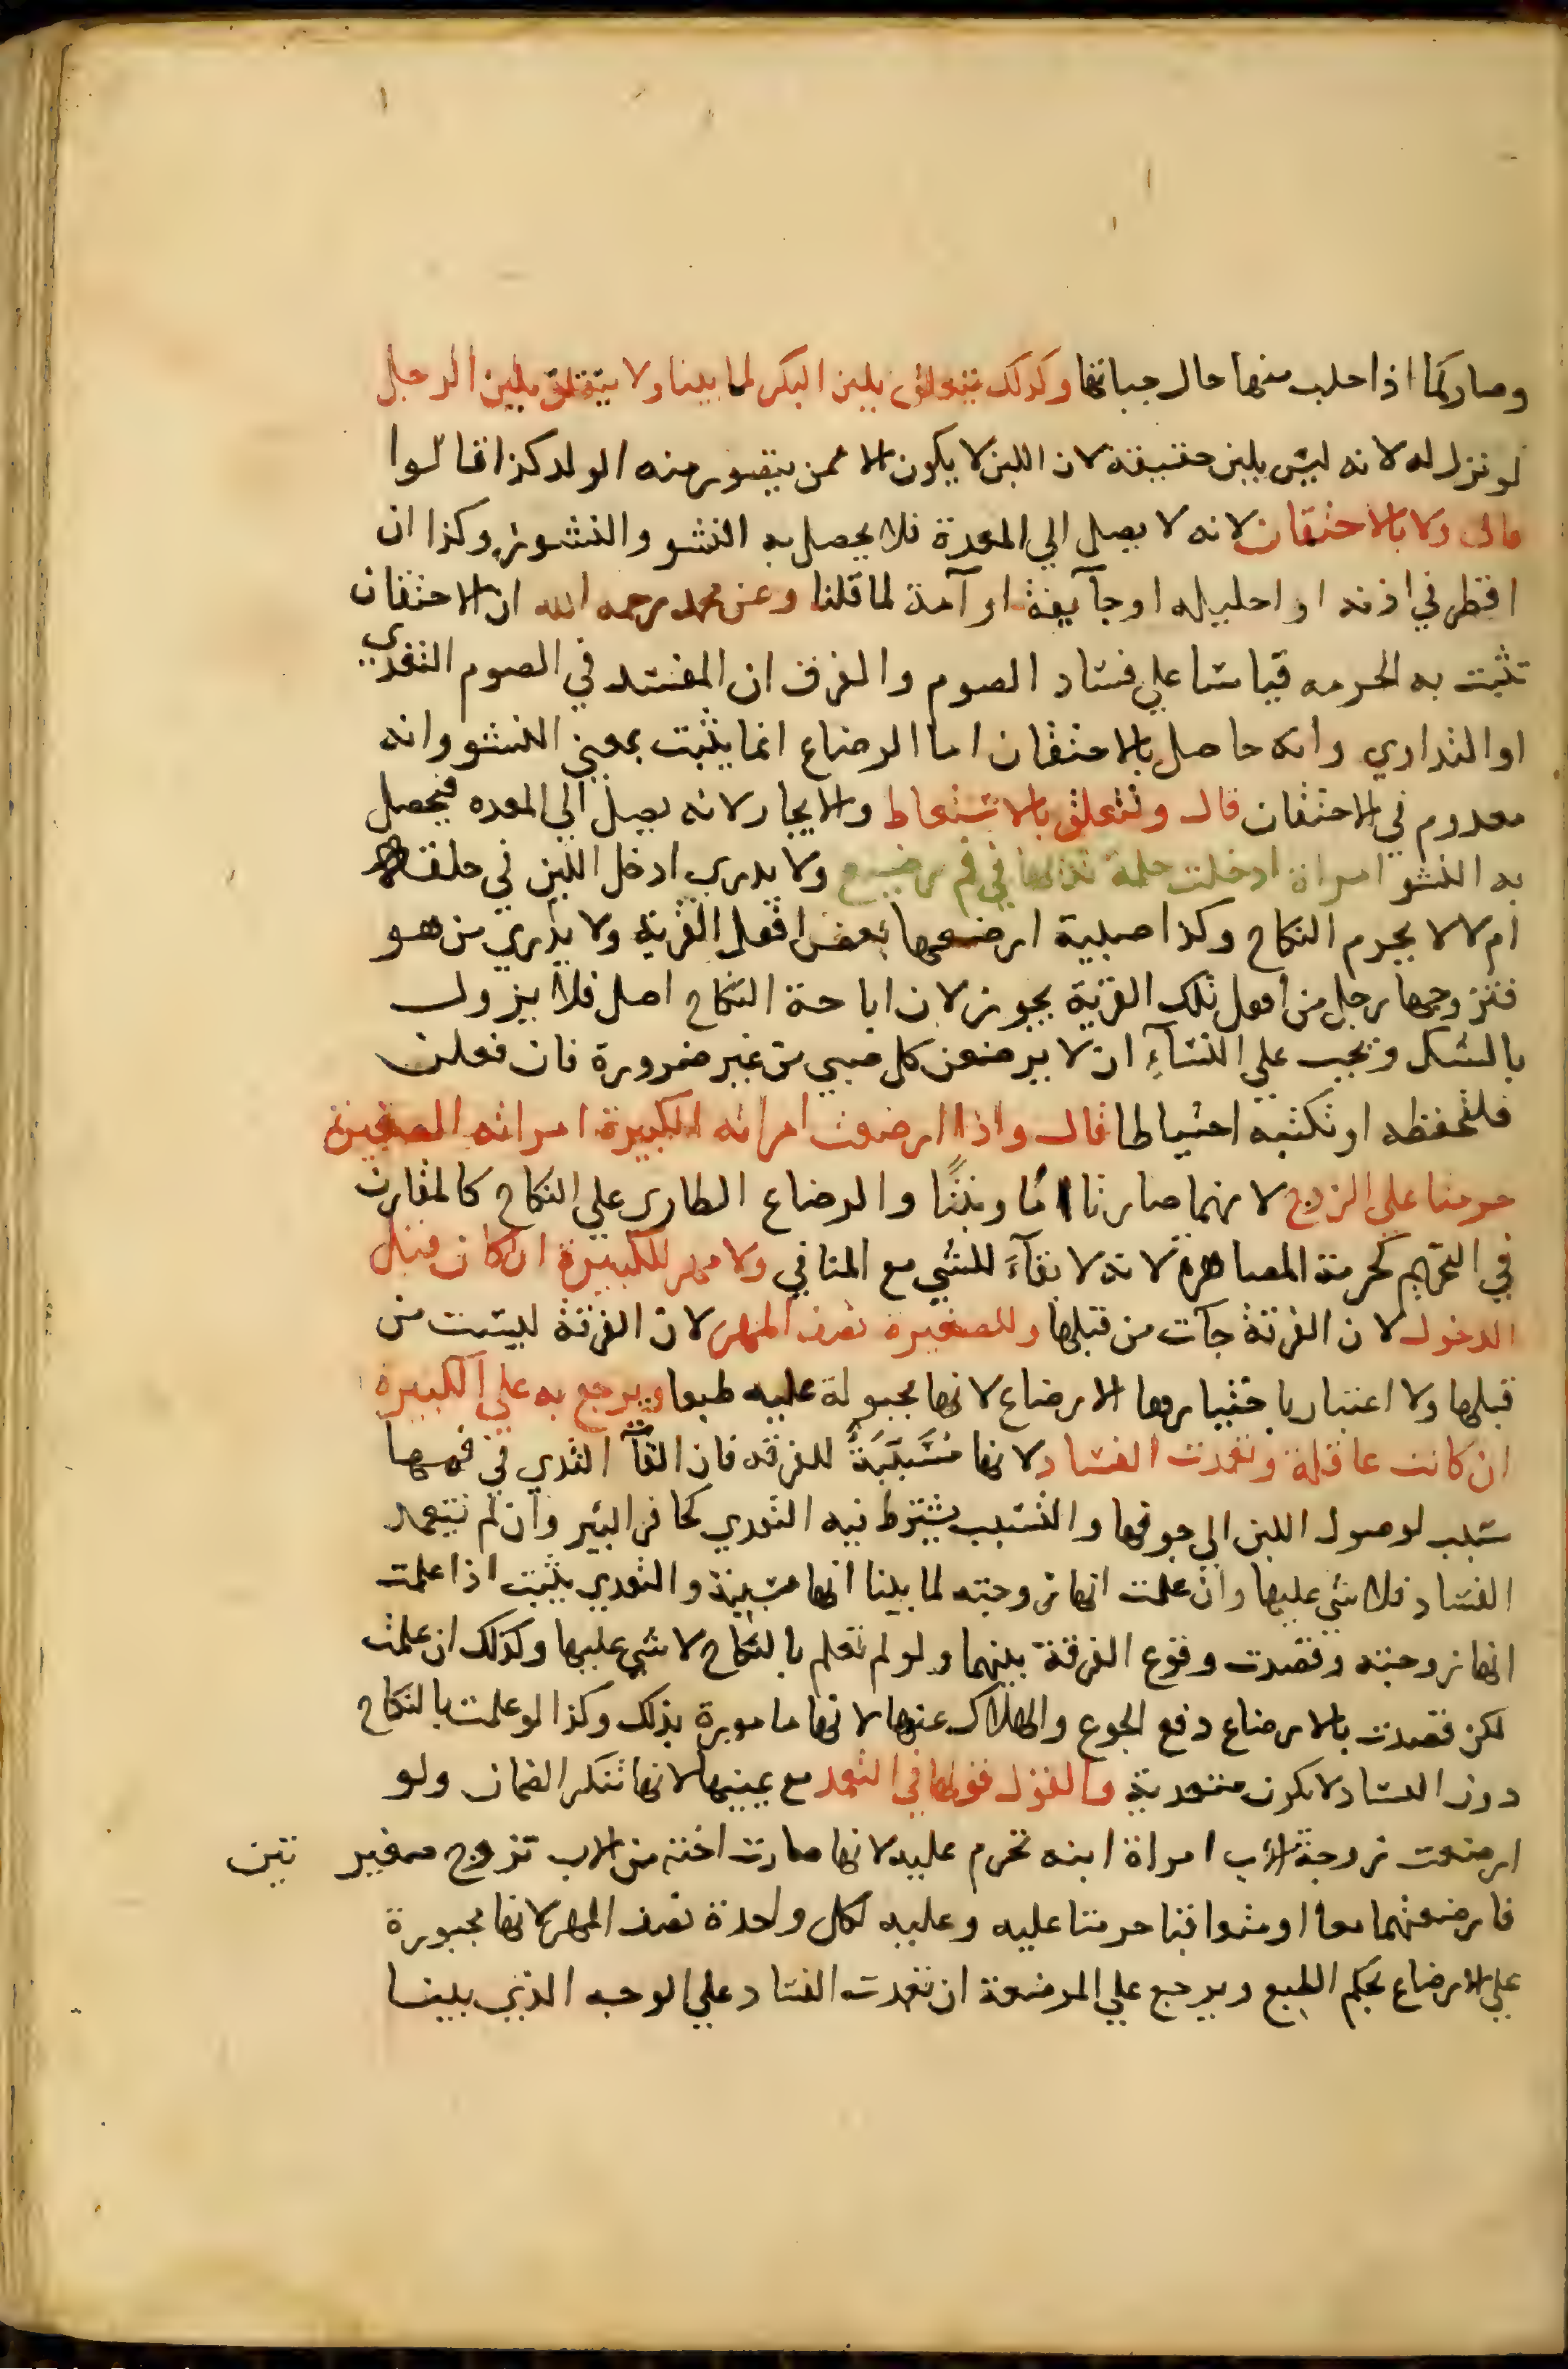 وصار كما اذا حلب منها حال حياتها وكذلك يتعلق بلبن البكر لما بينا ولا يتعلق بلبن الرجل
لو نزل له لانه ليس بلبن حقيقة لان اللبن لا يكون الا ممن يتصور منه الولد كذا قالوا
قال ولا بالاحتقان لانه لا يصل الي المعدة فلا يحصل به النشو والنشوز وكذا ان
اقطر في اذنه او احليله او جآيفة او آمة لما قلنا وعن محمد رحمه الله ان الاحتقان
تثبت به الحرمه قياسا علي فساد الصوم والفرق ان المفسد في الصوم التغدي
او التداوي وانه حاصل بالاحتقان اما الرضاع انما يثبت بمعني النشو وانه
معدوم في الاحتقان قال وتتعلق بالاستعاط والايجار لانه يصل الي المعده فيحصل
به النشو امراة ادخلت حلمة ثديها في فم رضيع ولا يدري ادخل اللبن في حلقه
ام لا لا يحرم النكاح وكذا صبية ارضعها بعض اهل القرية ولا يدري من هو
فتزوجها رجل من اهل تلك القرية يجوز لان اباحة النكاح اصل فلا يزول
بالشك ويجب علي النسآءِ ان لا يرضعن كل صبي من غير ضرورة فان فعلن
فلتحفظه او تكتبه احتياطا قال واذا ارضعت امراته الكبيرة امراته الصغيرة
حرمتا علي الزوج لانهما صارتا امًا وبنتًا والرضاع الطاري علي النكاح كالمقارن
في التحريم كحرمة المصاهرة لانه لا بقآءَ للشي مع المنافي ولا مهر للكبيرة ان كان قبل
الدخول لان الفرقة جآت من قبلها وللصغيرة نصف المهر لان الفرقة ليست من
قبلها ولا اعتبار باختيارها الارضاع لانها مجبولة عليه طبعا ويرجع به علي الكبيرة
ان كانت عاقلة وتعمدت الفساد لانها مُسَبِّبَةٌ للفرقه فان القآ الثدي في فمها
سبب لوصول اللبن الي جوفها والتسبب يشترط فيه التعدي كحافر البئر وان لم تتعمد
الفساد فلا شي عليها وان علمت انها زوجته لما بينا انها مسببة والتعدي يثبت اذا علمت
انها زوجته وقصدت وقوع الفرقة بينهما ولو لم تعلم بالنكاح لا شي عليها وكذلك ان علمت
لكن قصدت بالارضاع دفع الجوع والهلاك عنها لانها مامورة بذلك وكذا لو علمت بالنكاح
دون الفساد لا يكون متعدية والقول قولها في التعمد مع يمينها لانها تنكر الضمان ولو
ارضعت زوجة الاب امراة ابنه تحرم عليه لانها صارت اخته من الاب تزوج صغيرتين
فارضعتهما معا او متعاقبا حرمتا عليه وعليه لكل واحدة نصف المهر لانها مجبورة
علي الارضاع بحكم الطبع ويرجع علي المرضعة ان تعمدت الفساد علي الوجه الذي بينا